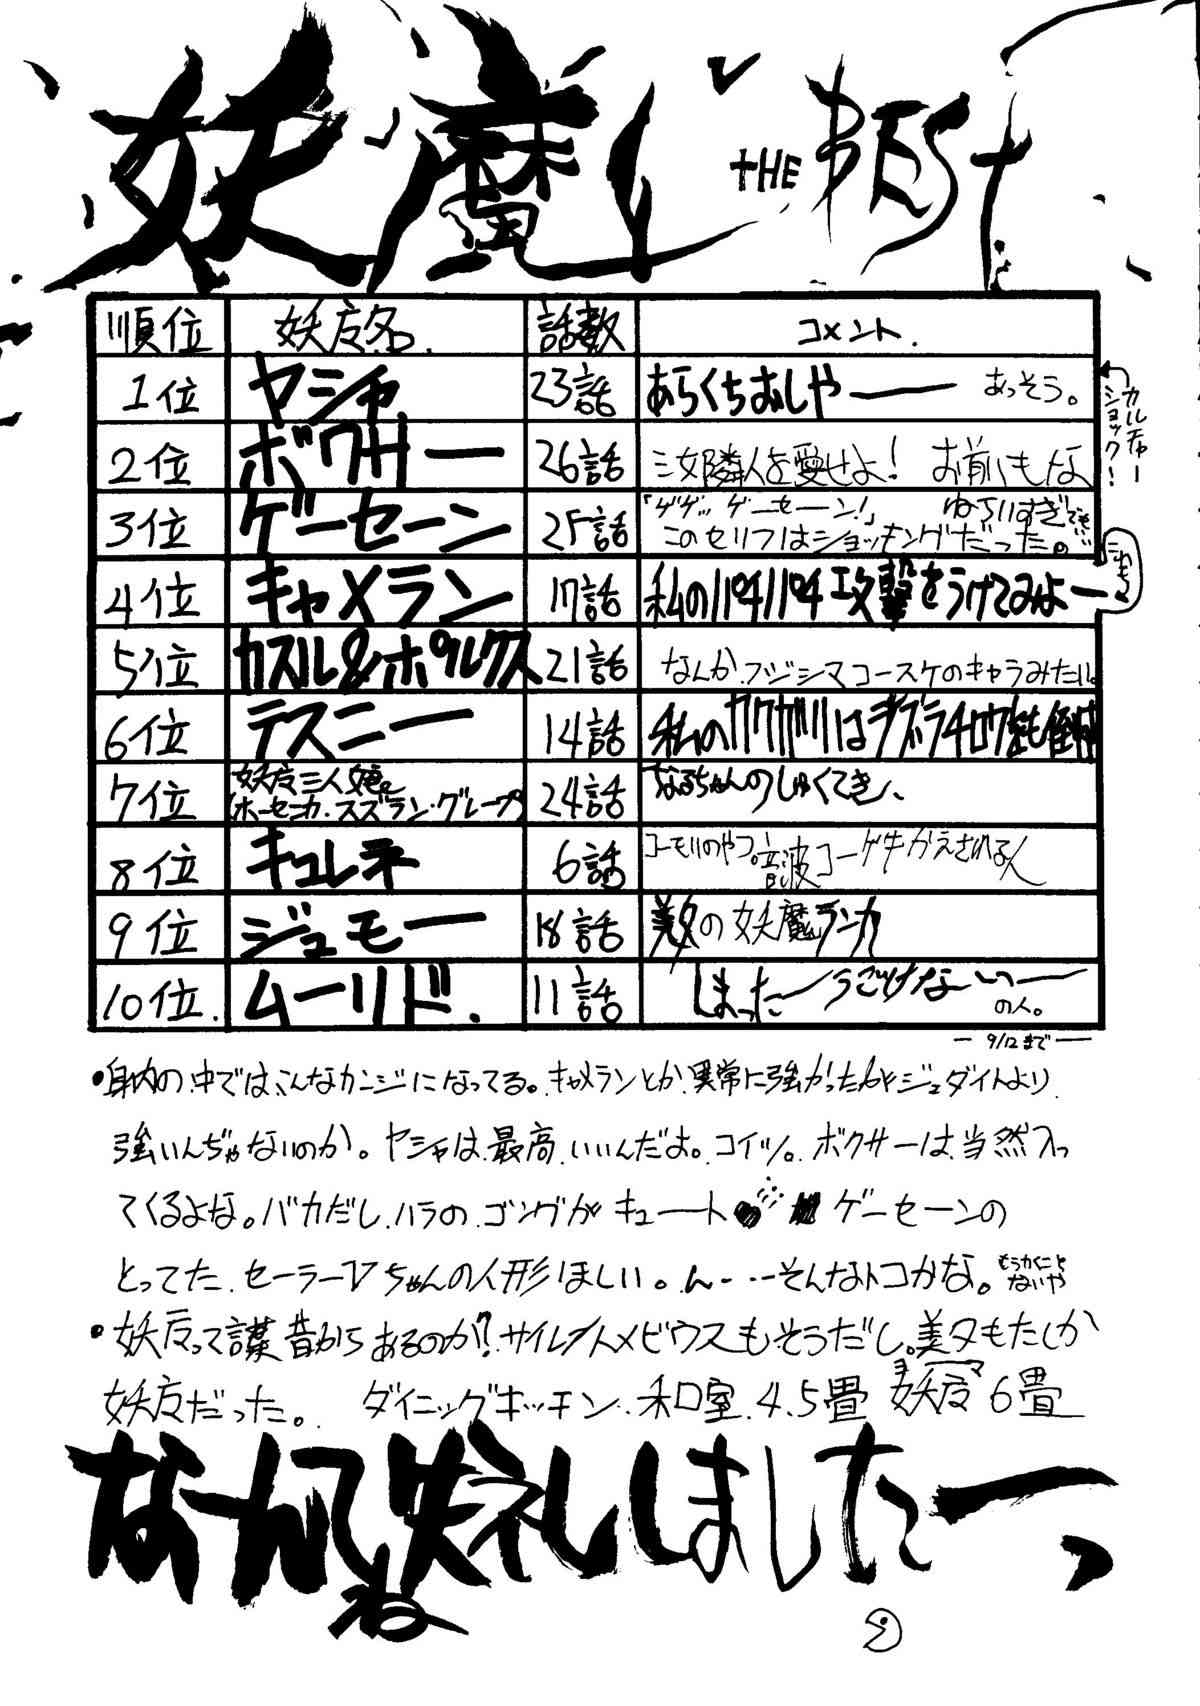 妖魔 THE BEST
順位 妖魔名. 話数 コメント.
1位 ヤシャ 23話 あらくちおしやーー あっそう。
カルチャーショック!
2位 ボクサー 26話 三女隣人を愛せよ! お前もな
3位 ゲーセーン 25話 「ゲゲッ ゲーセーン!」
このセリフはショッキングだった。
4位 キャメラン 17話 私のパチパチ攻撃をうけてみよー
5位 カスル&ポルクス 21話 なんか.フジシマコースケのキャラみたい。
6位 テスニー 14話
7位 妖魔三人娘 (ホーセニカ・スズラン・グレープ) 24話 なるちゃんのしゅくてき、
8位 キュレネ 6話 コーモリのやつ。音波コーゲキかえされる人
9位 ジュモー 18話 美夕の妖魔
10位. ムーリド. 11話 しまったーうごけないっー の人。
― 9/12まで ―
•身内の中では、こんなカンジになってる。キャメランとか異常に強かったなジェダイトより
強いんぢゃないのか。ヤシャは最高いいんだよ。コイツ。ボクサーは当然入っ
てくるよな。バカだし、ハラのゴングがキュート ゲーセーンの
とってた.セーラーVちゃんの人形ほしい。ん---そんなトコかな。もうかくことないや
•妖魔って言葉昔からあるのか?サイレントメビウスもそうだし。美夕もたしか
妖魔だった。 ダイニングキッチン.和室.4.5畳 妖魔6畳
ヨーマ
なーんてね 失礼しましたーっ